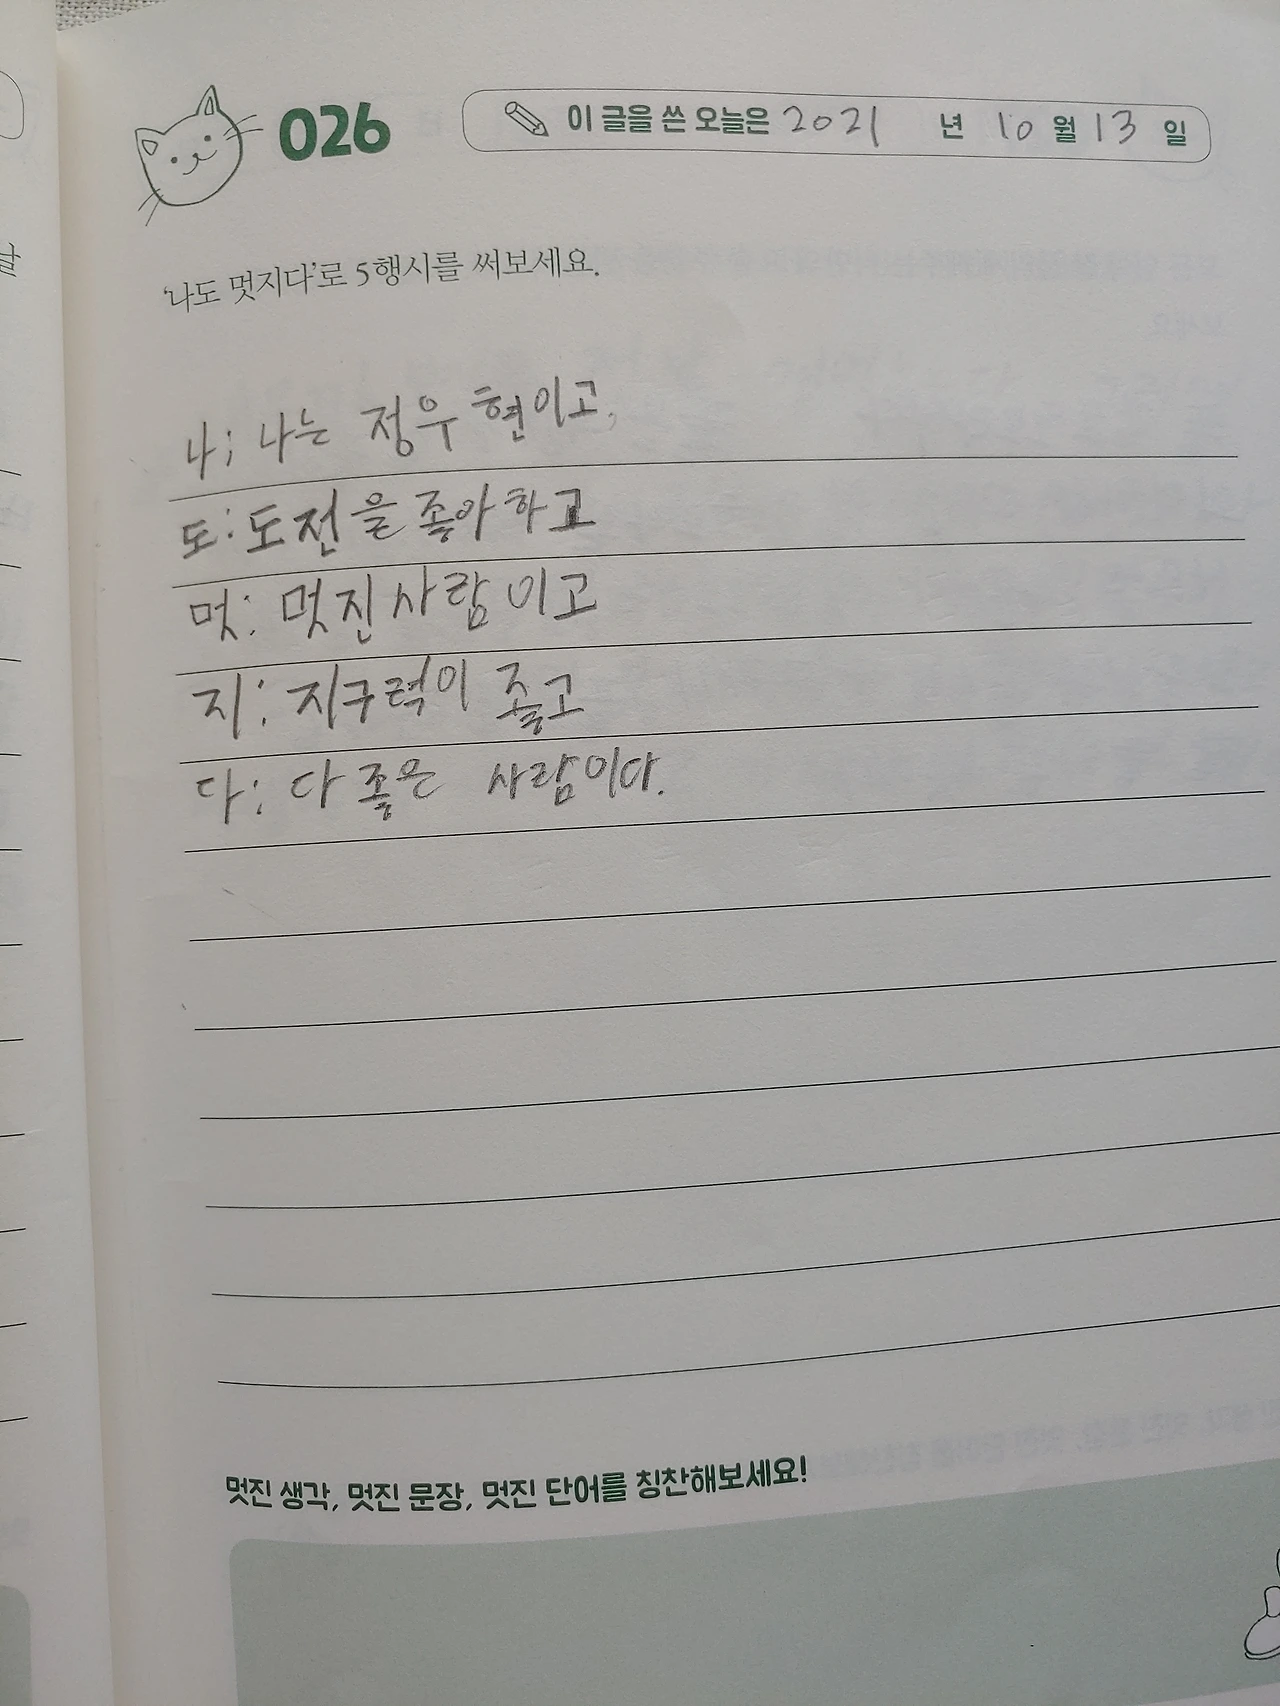 026
이 글을 쓴 오늘은 2021 년 10 월 13 일
'나도 멋지다'로 5행시를 써보세요.
나; 나는 정우현이고,
도: 도전을 좋아하고
멋: 멋진 사람이고
지: 지구력이 좋고
다: 다 좋은 사람이다.
멋진 생각, 멋진 문장, 멋진 단어를 칭찬해보세요!